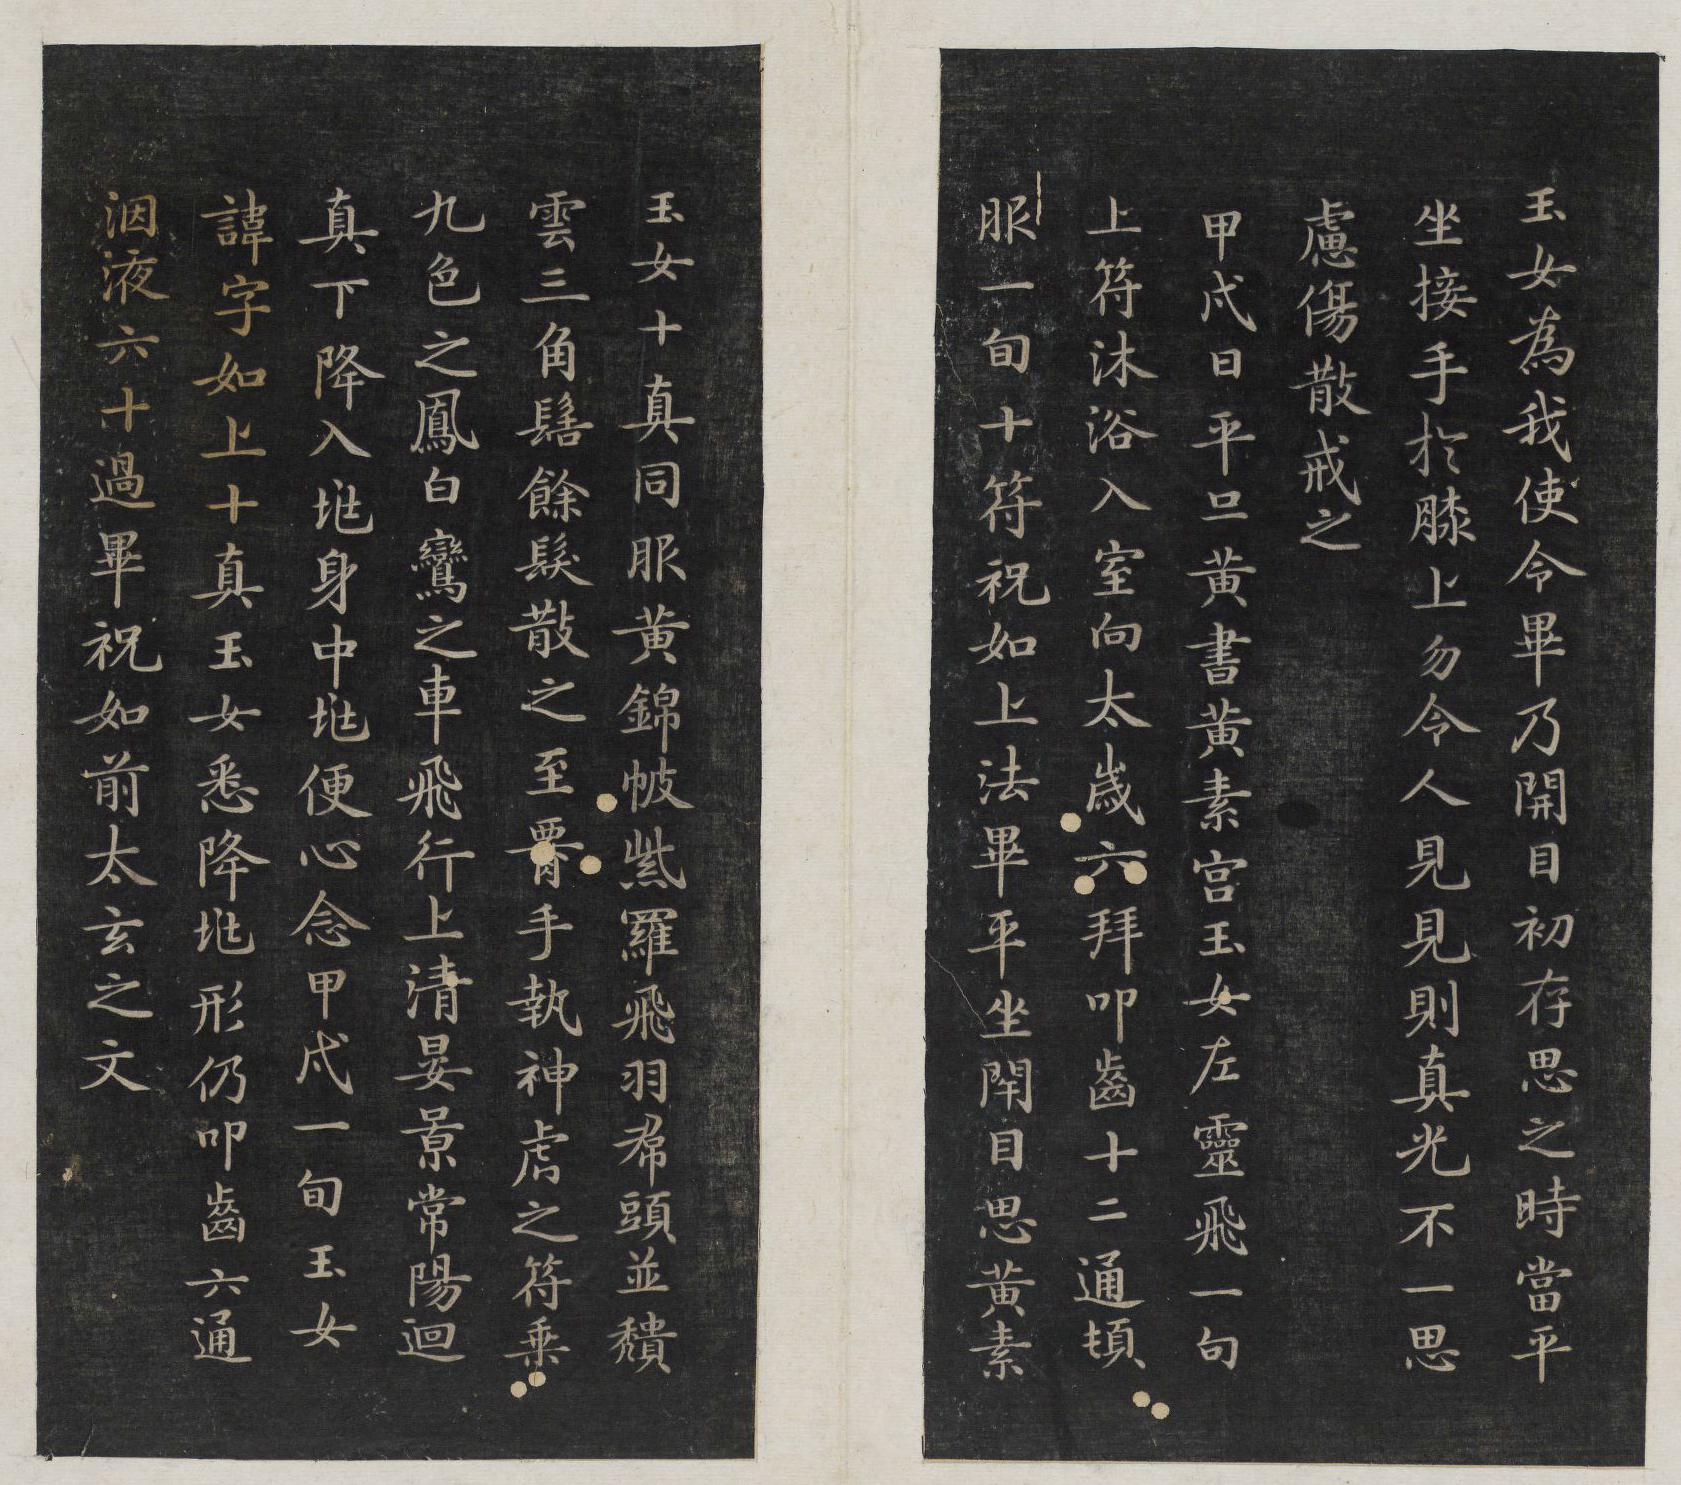 玉女為我使令畢乃開目初存思之時當平
坐接手於膝上勿令人見見則真光不一思
慮傷散戒之
甲戌日平旦黃書黃素宮玉女左靈飛一旬
上符沐浴入室向太歲六拜叩齒十二通頓
服一旬十符祝如上法畢平坐閇目思黃素
玉女十真同服黃錦帔紫羅飛羽帬頭並頹
雲三角髻餘髮散之至署手執神虎之符乗
九色之鳳白鸞之車飛行上清晏景常陽迴
真下降入𡉏身中𡉏便心念甲戌一旬玉女
諱字如上十真玉女悉降𡉏形仍叩齒六通
洇液六十過畢祝如前太玄之文